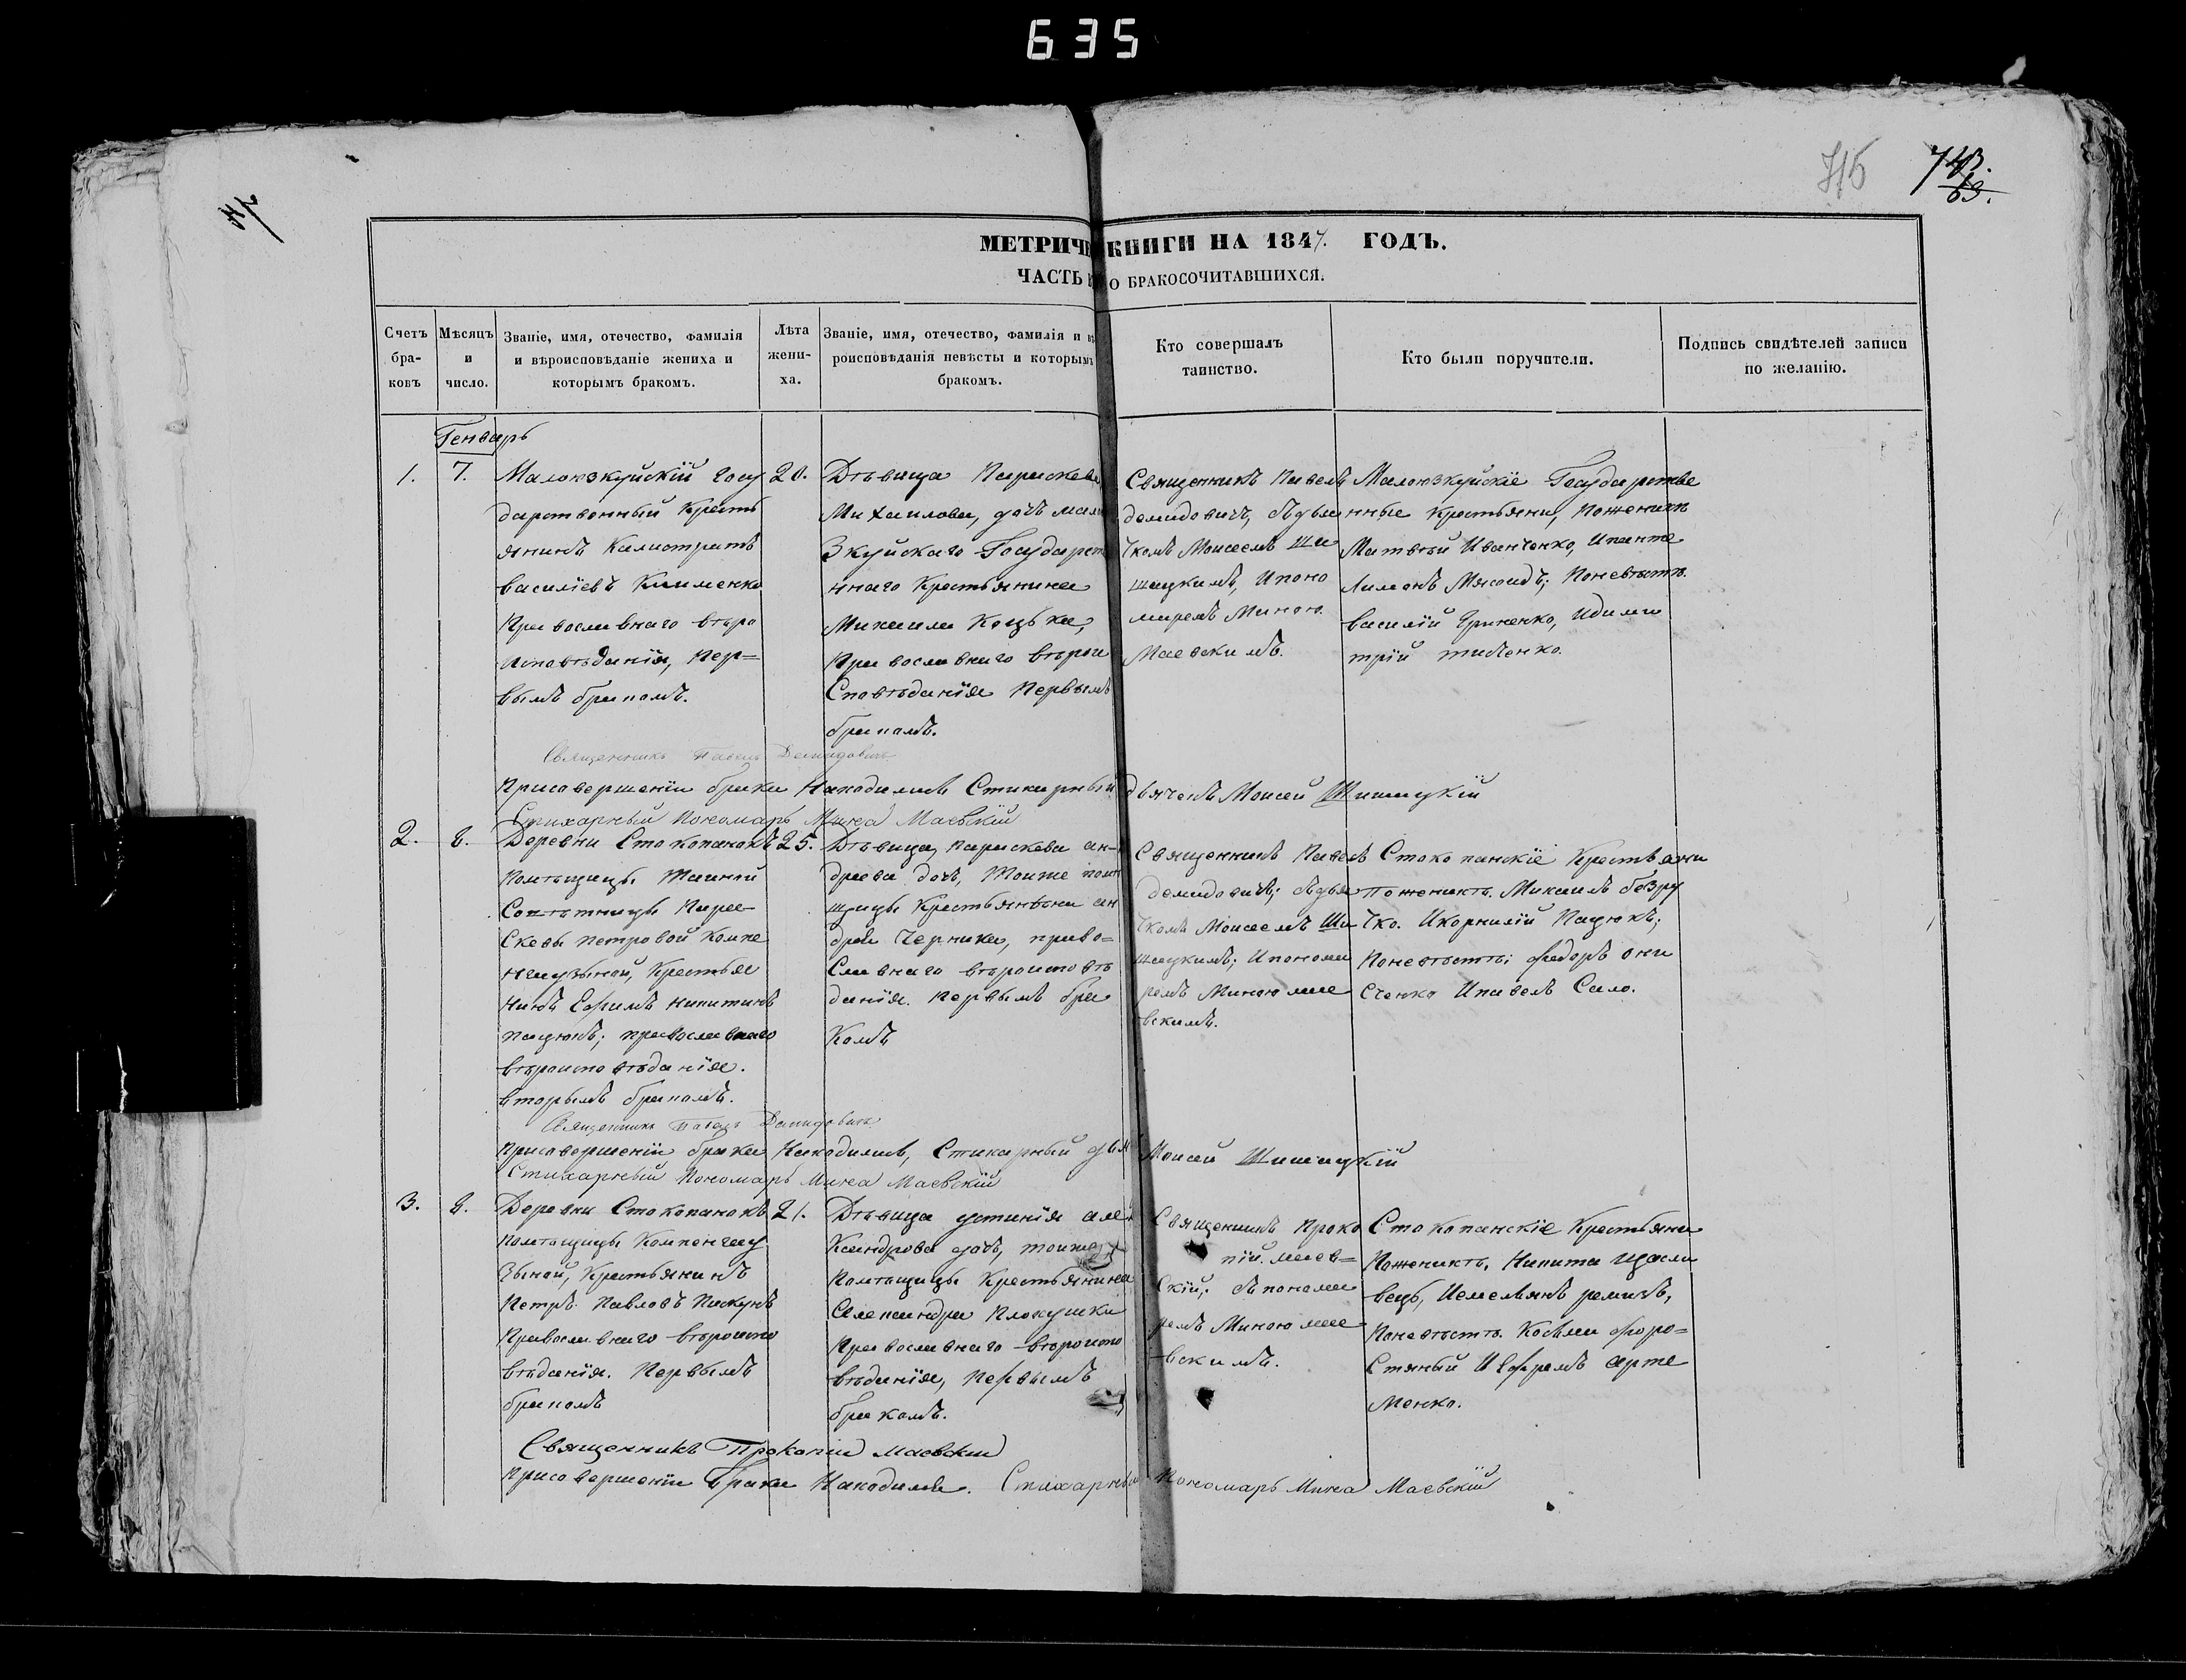 635
715
743.
63.
47
МЕТРИЧЕ КНИГИ НА 1847. ГОДЪ.
ЧАСТЬ О БРАКОСОЧИТАВШИХСЯ.
Счетъ бра-ковъ
Мѣсяцъ и число.
Званіе, имя, отечество, фамилія и вѣроисповѣданіе жениха и которымъ бракомъ.
Лѣта жени-ха.
Званіе, имя, отечество, фамилія и вѣ роисповѣданія невѣсты и которымъ бракомъ.
Кто совершалъ таинство.
Кто были поручители.
Подпись свидѣтелей записи по желанію.
Генварь
1.
7.
Малоюзкуйскій госу
дарственный Кресть
янинъ Калистратъ
Василіевъ Клименко
Православнаго вѣро
исповѣданія, Пер=
вымъ бракомъ.
20.
Дѣвица Параскева
Михаилова, дочь мало
Зкуйскаго Государст
ннаго Крестьянина
Михаила Коцька,
Православнаго вѣрои
Сповѣданія Первымъ
бракомъ.
Священникъ Павелъ
демидовичъ, съдья
чкомъ Моисеемъ Ши
шацкимъ, Ипоно
маремъ Миною
Маевскимъ.
Малоюзкуйскіе Государстве
нные крестьяни, Поженихѣ
Матвѣй Иванченко, Ипанте
Лимонъ Мясоидъ; Поневѣстѣ.
Василій Гриненко, Идими
трій титенко.
Священникъ Павелъ Демидовичъ
Присовершеніи брака Находился Стихарный дьячекъ Моисей Шишацкій
Стихарный Пономарь Мина Маевскій
2.
8.
Деревни Стокопанокъ
Помѣщицы Тайной
Совѣтницы Пара
Скевы Петровой Компа
нѣщзыной, Крестья
Нинъ Ефимъ Никитинъ
Пацюкъ; православнаго
вѣроисповѣданія.
вторымъ бракомъ.
25.
Дѣвица, параскева ан-
дреева дочь, Тоиже помѣ
щицы Крестьянина ан
дрея Черника, право=
Славнаго вѣроисповѣ
данія. Первымъ бра
Комъ
Священникъ Павелъ
демидовичъ; съдья
чкомъ Моисеемъ Ши
шацкимъ; Ипонома
ремъ Миною мае
вскимъ.
Стокопанскіе Крестьяни
поженихѣ. Михаилъ безру
чко. Икорнилій Пацюкъ;
Поневѣстѣ; федоръ они
Сченко Ипавелъ Сало.
Священникъ Павелъ Демидовичъ
Присовершеніи брака Находился, Стихарный дья Моисей Шишацкій
Стихарный Пономарь Мина Маевскій
3.
8.
Деревни Стокопанокъ
помѣщицы
Крестьянинъ
Петръ Павловъ Пискунъ
Православнаго вѣроиспо
вѣданія. Первымъ
бракомъ
21.
Дѣвица устинія але
Ксандрова дочь, тоиже
Помѣщицы Крестьянина
Александра Плохушки
Православнаго вѣроиспо
вѣданія, Первымъ
бракомъ.
Священникъ Проко
пій маев=
Скій; съпонома
ремъ Миною мае
вскимъ.
Стокопанскіе Крестьяни
Поженихѣ, Никита Щасли
вецъ, Иемельянъ ремизъ,
Поневѣстѣ. Косьма форо=
Стяный Иефремъ арте
Менко.
Священникъ Прокопій маевскій
Присовершеніи Брака Находился. Стихарный Пономарь Мина Маевскій